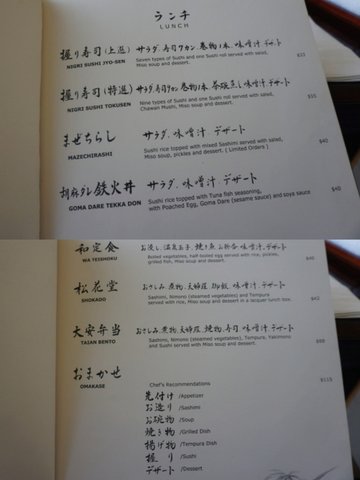 ランチ
LUNCH
握り寿司(上選) サラダ.寿司タカン.巻物1本.味噌汁.デザート
NIGRI SUSHI JYO-SEN
Seven types of Sushi and one Sushi roll served with salad,
Miso soup and dessert.
握り寿司(特選) 巻物1本.茶碗蒸し.味噌汁.デザート
NIGRI SUSHI TOKUSEN
Nine types of Sushi and one Sushi roll served with salad,
Chawan Mushi, Miso soup and dessert.
$55
まぜちらし サラダ.味噌汁.デザート
MAZECHIRASHI
Sushi rice topped with mixed Sashimi served with salad,
Miso soup, pickles and dessert. ( Limited Orders )
$40
胡麻ダレ鉄火丼 サラダ.味噌汁.デザート
GOMA DARE TEKKA DON
Sushi rice topped with Tuna fish seasoning,
with Poached Egg, Goma Dare (sesame sauce) and soya sauce
$40
和定食 味噌汁.デザート
WA TEISHOKU
Boiled vegetables, half boiled egg served with rice, pickles,
grilled fish, Miso soup and dessert.
松花堂 おさしみ.煮物.天婦羅.御飯.味噌汁.デザート
SHOKADO
Sashimi, Nimono (steamed vegetables) and Tempura
served with rice, Miso soup and dessert in a lacquer lunch box.
$42
大安弁当 おさしみ.煮物.天婦羅.焼物.寿司.味噌汁.デザート
TAIAN BENTO
Sashimi, Nimono (steamed vegetables), Tempura, Yakimono
and Sushi served with Miso soup and dessert.
おまかせ
OMAKASE
Chef's Recommendations
$115
先付け /Appetizer
お造り /Sashimi
お碗物 /Soup
焼き物 /Grilled Dish
揚げ物 /Tempura Dish
握り /Sushi
デザート /Dessert